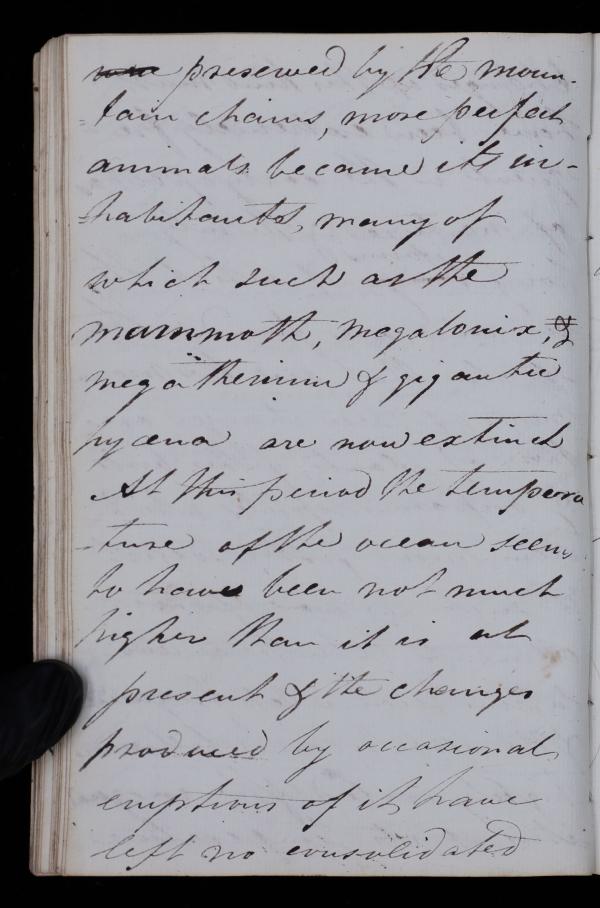 preserved by the moun-
-tain chains, more perfect
animals became its in-
-habitants, many of
which such as the
mammoth, megalonix, &
megatherium & gigantic
hyæna are now extinct
At this period the tempera
-ture of the ocean seems
to have been not much
higher than it is at
present & the changes
produced by occasional
eruptions of it have
left no consolidated